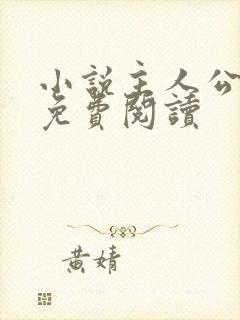 小説主人公
免費閱讀
黃婧